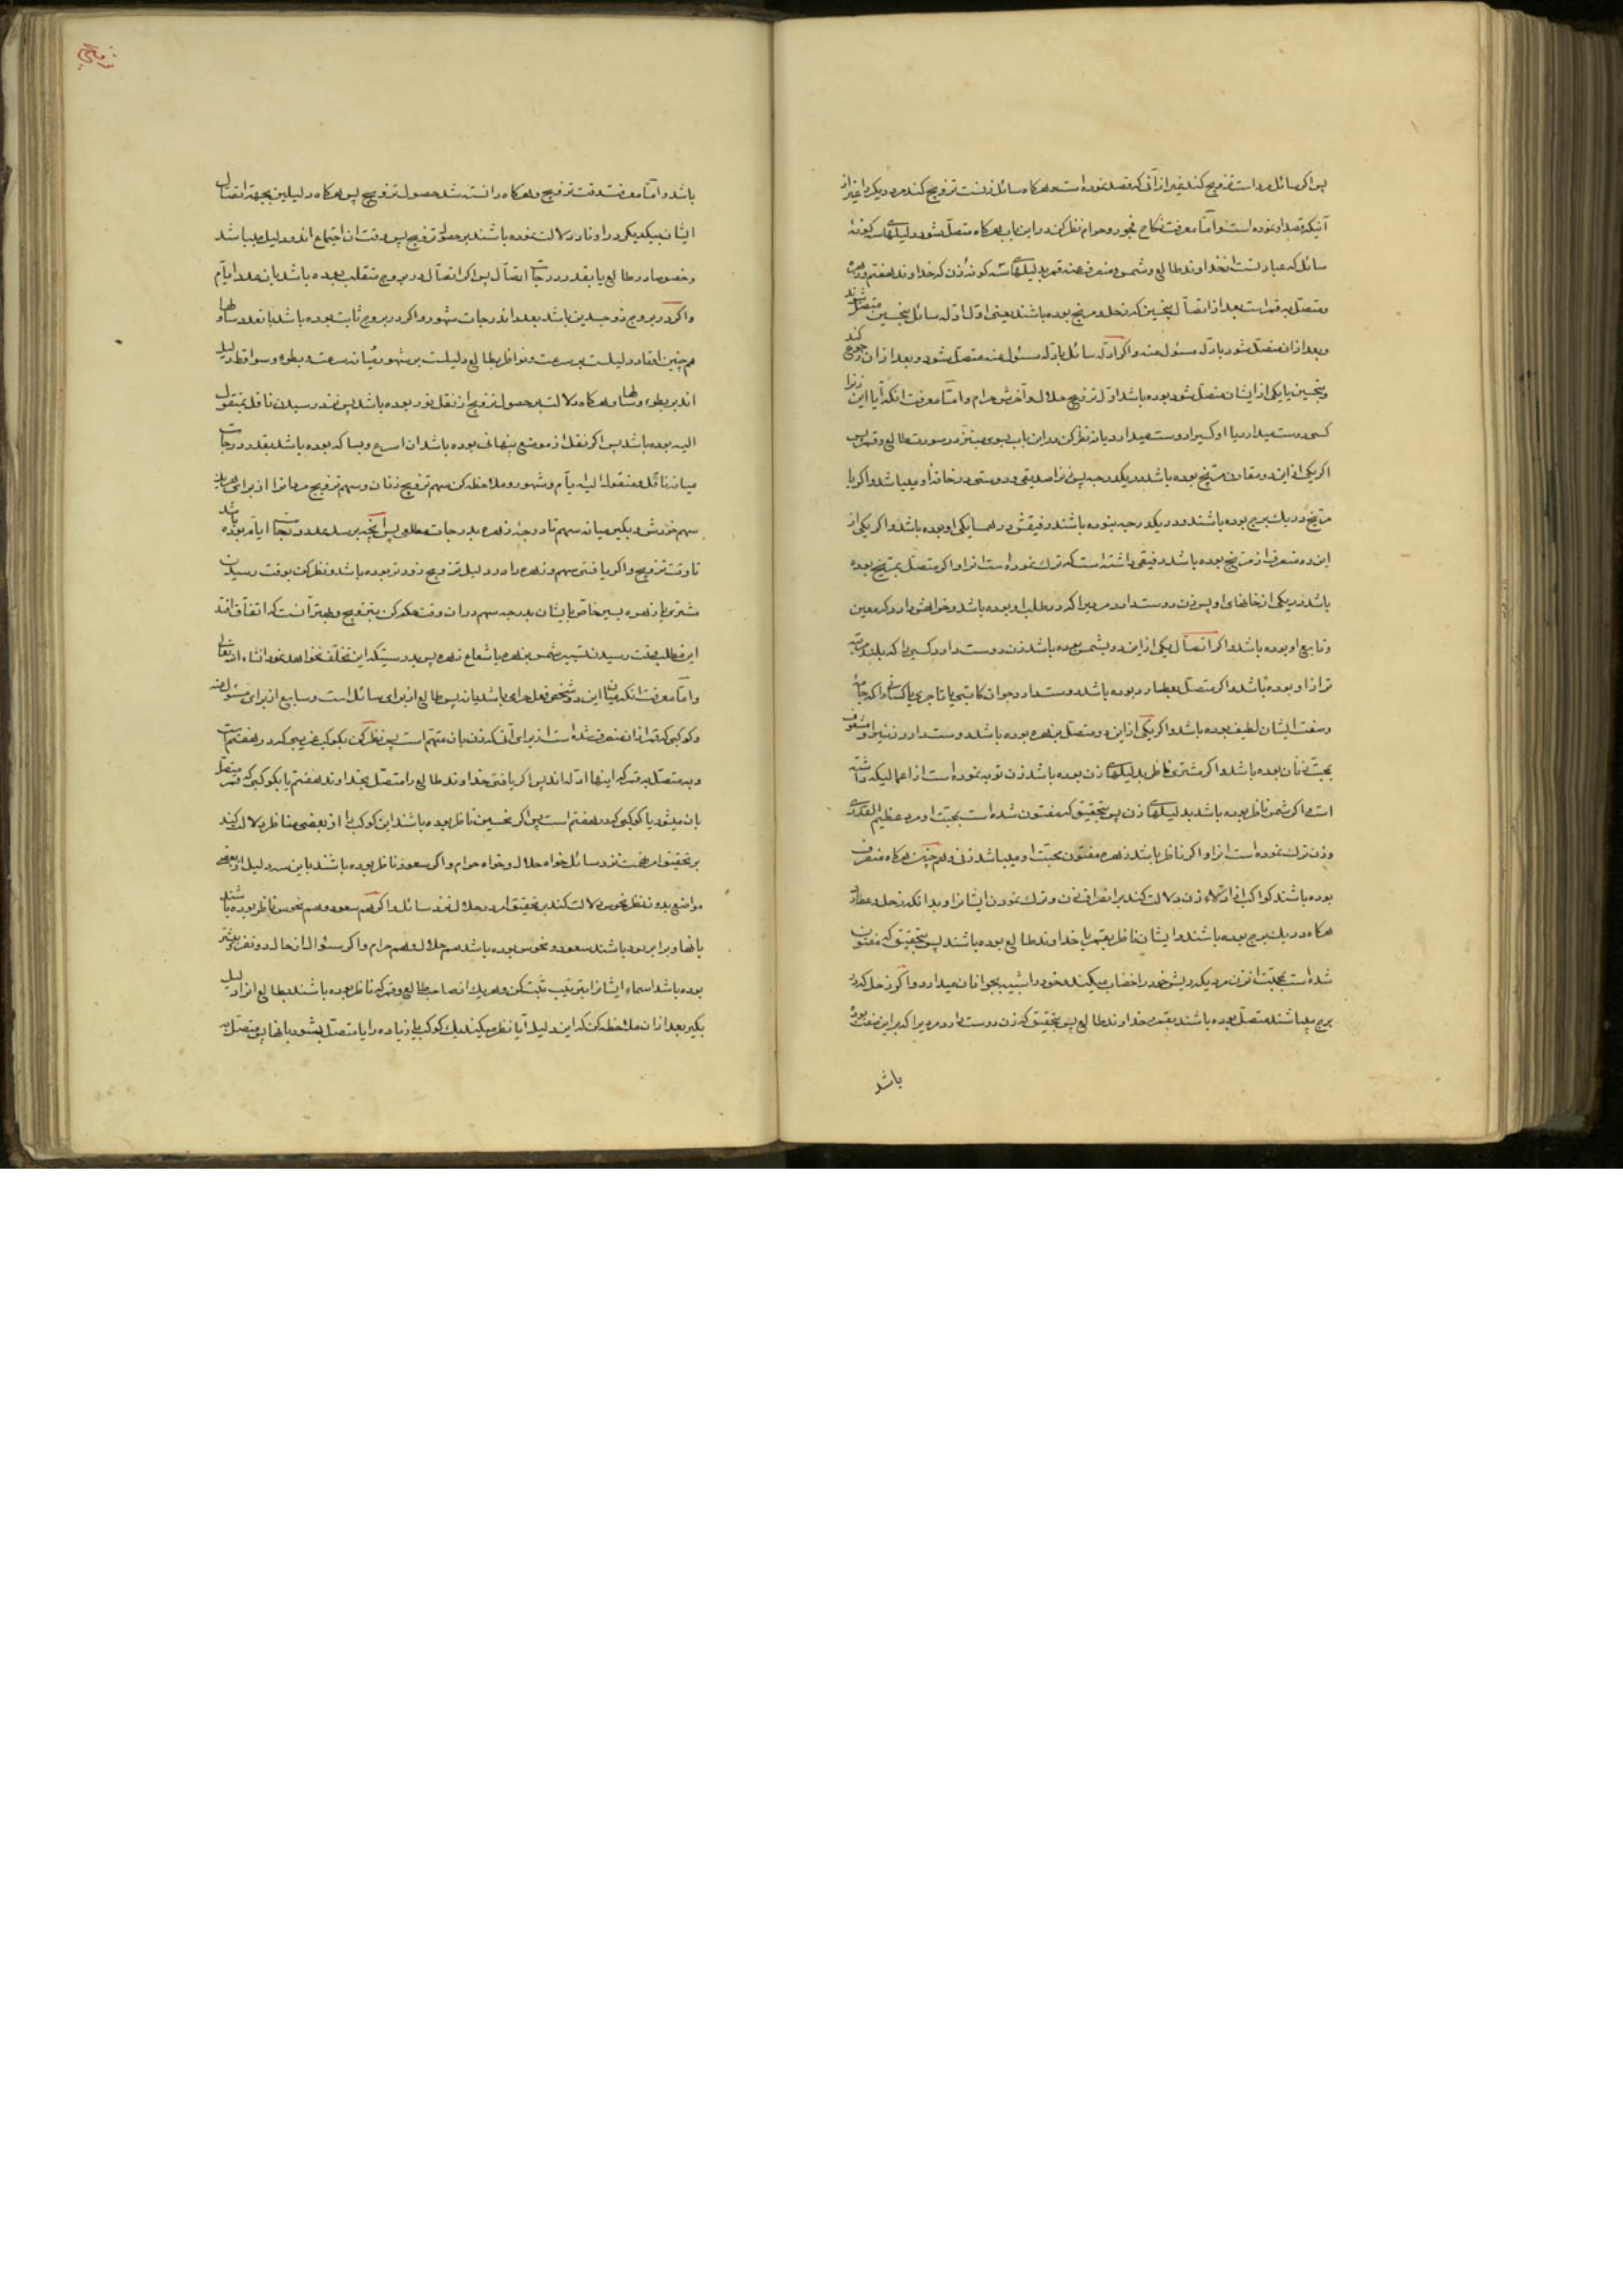 پس اگر سائل مرد است تزویج کند غیر از آنی که قصد نموده است و هرگاه سائل زنست تزویج کند مرد دیگر را غیر از
آنیکه قصد او نموده است و اما معرفت نکاح فجور و حرام نظر کن در این باب هرگاه متصل شود دلیلهای سه گونهٔ
سائل که عبارتست از خداوند طالع و شمس و منصرف عنه قمر بدلیلهای سه گونهٔ زن که خداوند هفتم و زهره
و متصل به قمر است بعد از اتصال بنحسین که زحل و مریخ بوده باشند یعنی اول ادلهٔ سائل بنحسین متصل شوند
و بعد از ان متصل شود بادلهٔ مسئول عنه و اگر ادلهٔ سائل بادلهٔ مسئول عنه متصل شود و بعد از ان رجوع کند
و بنحسین یا یکی از ایشان متصل شود بوده باشد اول تزویج حلال و آخرش حرام و اما معرفت انکه آیا این زنرا
کسی دوست میدارد یا او کسیرا دوست میدارد یا نه نظر کن در این باب بسوی مریخ در سورت طالع و قمر پس
اگر یکی از این دو مقارن مریخ بوده باشد در یکدرجه پس زنرا صدیقی و دوستی در خانهٔ او میباشد و اگر با
مریخ در یک برج بوده باشند و در یکدرجه نبوده باشند رفیقش در همسایگی او بوده باشد و اگر یکی از
این دو منصرف از مریخ بوده باشد رفیقی داشته است که ترک نموده است انرا و اگر متصل بمریخ بوده
باشد در یکی از خانهای او پس زن دوست دارد مردیرا که در طلب او بوده باشد و خواهش دارد که معین
و تابع او بوده باشد و اگر اتصال یکی از این دو بشمس بوده باشد زن دوست دارد کسی را که بلند مرتبه
تر از او بوده باشد و اگر متصل بعطارد بوده باشد دوست دارد جوان کاتبی یا تاجری یا کسانی را که جامه
و صفت ایشان لطیف بوده باشد و اگر یکی از این دو متصل بزهره بوده باشد دوست دارد زنیرا و مشعوف
بمحبت زنان بوده باشد و اگر مشتری ناظر بدلیلهای زن بوده باشد زن توبه نموده است از اعمالیکه داشته
است و اگر شمس ناظر بوده باشد بدلیلهای زن پس بتحقیق که مفتون شده است بمحبت او مرد عظیم القدری
و زن ترک نموده است انرا و اگر ناظر باشد زهره مفتون محبت او میباشد زنی و هم چنین هرگاه منصرف
بوده باشند کواکب از ادلهٔ زن دلالت کند بر انصراف زن و ترک نمودن ایشانرا و بدانکه زحل و عطارد
هرگاه در یک برج بوده باشند و ایشان ناظر بقمر یا خداوند طالع بوده باشند پس بتحقیق که مفتون
شده است بمحبت از زن مردیکه ریش خود را خضاب میکند و خود را شبیه بجوانان میدارد و اگر زحل که در
برج میباشند متصل بوده باشند بقمر و خداوند طالع پس بتحقیق که زن دوست دارد مردیرا که بر این صفت بوده
باشد
باشد و اما معرفت وقت تزویج و هرگاه دانسته شد حصول تزویج پس هرگاه دلیلین بجهة اتصال
ایشان بیکدیگر در اوتاد دلالت نموده باشند بر حصول تزویج پس وقت ان اجتماع ان دو دلیل میباشد
و خصوصا در طالع یا بقدر درجات اتصال پس اگر اتصال در بروج منقلب بوده باشد بان عدد ایام
و اگر در بروج ذو جسدین باشد بعدد ان درجات شهور و اگر در بروج ثابت بوده باشد بانعدد سالها
هم چنین اوتاد دلیلست بر سرعت و نواظر بطالع دلیلست بر شهور میانه سرعت و بطوء و سواقط دلیل
اند بر بطوء و سالها و هرگاه دلالت بر حصول تزویج از نقل نور بوده باشد پس نزد رسیدن ناقل بمنقول
الیه بوده باشد پس اگر نقل از موضع پنهانی بوده باشد ان اسرع و بسا که بوده باشد بقدر درجات
میانه ناقل و منقول الیه ایام و شهور و ملاحظه کن سهم تزویج زنان و سهم تزویج مردانرا از برای هر یک
سهم خودش و بگیر میانه سهم تا درجهٔ زهره بدرجات مطالعی پس انچه برسد عدد درجات ایام بوده باشد
تا وقت تزویج و اگر یافتی سهم و زهره را در دلیل تزویج زودتر بوده باشد و نظر کن بوقت رسیدن
مشتری یا زهره بسیر خاص بایشان بدرجه سهم در ان وقت حکم کن بتزویج و بهتر آنست که اتفاق افتد
این مطلب وقت رسیدن تسییر شمس بزهره یا شعاع زهره پس بدرستیکه این تخلف نخواهد نمود انشاء الله تعالی
و اما معرفت انکه میان این دو شخص فعل حرامی باشد یا نه پس طالع از برای سائل است و سابع از برای مسئول عنه
و کوکبی که قمر از ان منصرف شده است از برای آنی که زن بان متهم است پس نظر کن بکوکب غریبی که در هفتم است
و به متصل به قمر که اینها ادله اند پس اگر یافتی خداوند طالع را متصل بخداوند هفتم یا بکوکبی که قمر متصل
بان میشود یا کوکبی که در هفتم است پس اگر نحسین ناظر بوده باشند این کوکب را از بعضی مناظر دلالت کند
بر تحقیق امر تهمت نزد سائل خواه حلال و خواه حرام و اگر سعود ناظر بوده باشند باین سه دلیل از بعضی
مواضع بدون نظر نحوس دلالت کند بر تحقیق امر و حلال نزد سائل و اگر هم سعود و هم نحوس ناظر بوده باشند
بانها و برابر بوده باشند سعود و نحوس بوده باشد هم حلال و هم حرام و اگر سئوال از حال دو نفر بیشتر
بوده باشد اسماء ایشانرا بترتیب ثبت کن و هر یک از صاحب طالع و قمر که ناظر بوده باشند بطالع انرا دلیل
بگیر بعد از ان ملاحظه کن که این دلیل آیا نظر میکند بیک کوکب یا زیاده و ایا متصل میشود بانها پس متصل به